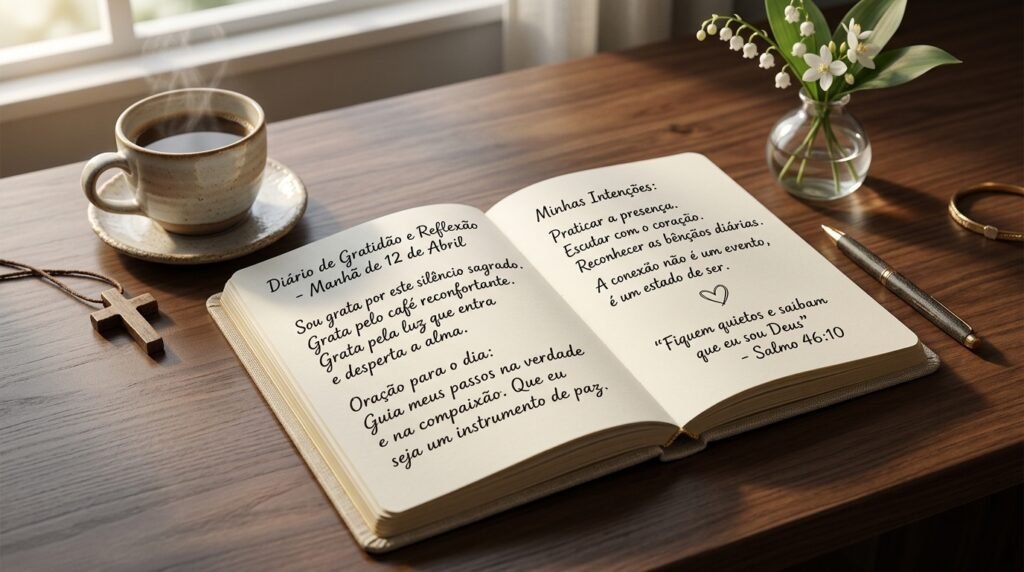 Diário de Gratidão e Reflexão
– Manhã de 12 de Abril
Sou grata por este silêncio sagrado.
Grata pelo café reconfortante.
Grata pela luz que entra
e desperta a alma.
Oração para o dia:
Guia meus passos na verdade
e na compaixão. Que eu
seja um instrumento de paz.
Minhas Intenções:
Praticar a presença.
Escutar com o coração.
Reconhecer as bênçãos diárias.
A conexão não é um evento,
é um estado de ser.
"Fiquem quietos e saibam
que eu sou Deus"
– Salmo 46:10